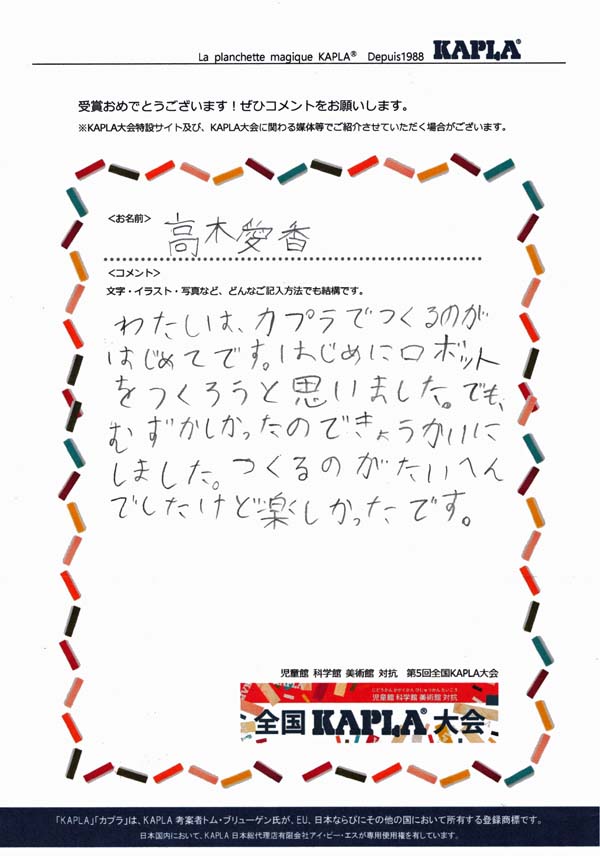 La planchette magique KAPLA® Depuis1988 KAPLA®
受賞おめでとうございます！ぜひコメントをお願いします。
※KAPLA大会特設サイト及び、KAPLA大会に関わる媒体等でご紹介させていただく場合がございます。
<お名前>
高木愛香
<コメント>
文字・イラスト・写真など、どんなご記入方法でも結構です。
わたしは、カプラでつくるのが
はじめてです。はじめにロボット
をつくろうと思いました。でも、
むずかしかったのできょうかいに
しました。つくるのがたいへん
でしたけど楽しかったです。
児童館 科学館 美術館 対抗 第5回全国KAPLA大会
じどうかん かがくかん びじゅつかん たいこう
児童館 科学館 美術館 対抗
全国 KAPLA® 大会
「KAPLA」「カプラ」は、KAPLA 考案者トム・ブリューゲン氏が、EU、日本ならびにその他の国において所有する登録商標です。
日本国内において、KAPLA 日本総代理店有限会社アイ・ピー・エスが専用使用権を有しています。